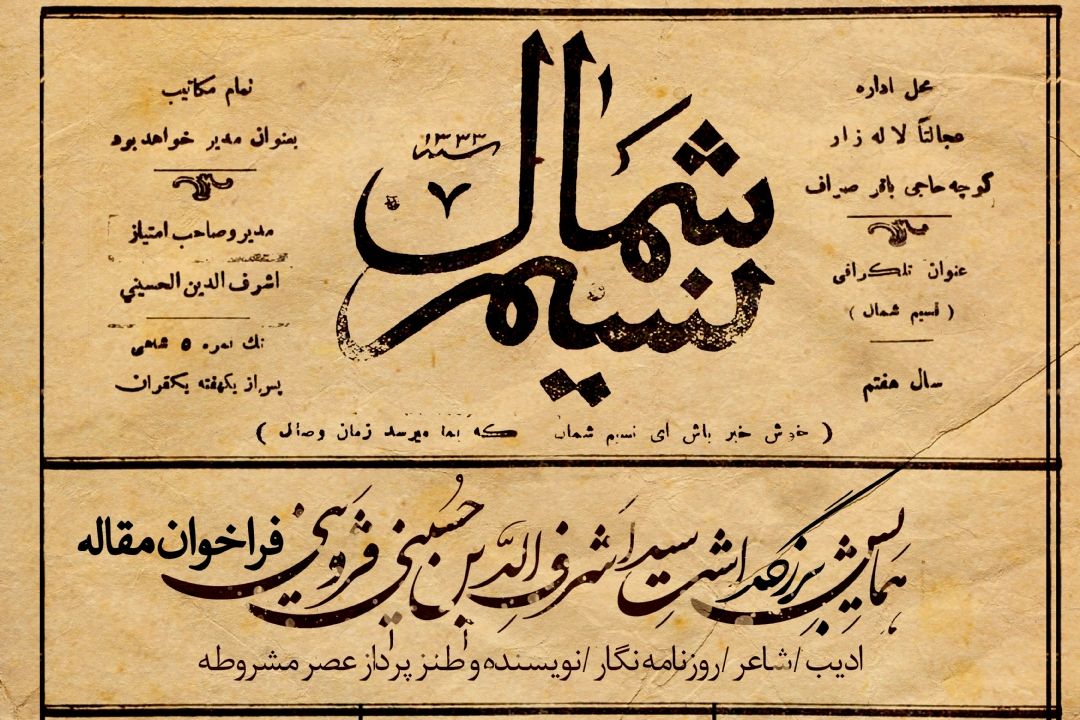 محل اداره
عجالتاً لاله زار
کوچه حاجی باقر صراف
عنوان تلگرافی
( نسیم شمال )
سال هفتم
نسیم شمال
سنه ۱۳۳۳
۷
تمام مکاتیب
بعنوان مدیر خواهد بود
مدیر و صاحب امتیاز
اشرف الدین الحسینی
تک نمره ۵ شاهی
پس از یکهفته یکقران
( خوش خبر باش ای نسیم شمال که بما میرسد زمان وصال )
همایش بزرگداشت سید اشرف الدین حسینی قزوینی فراخوان مقاله
ادیب / شاعر / روزنامه نگار / نویسنده و طنز پرداز عصر مشروطه